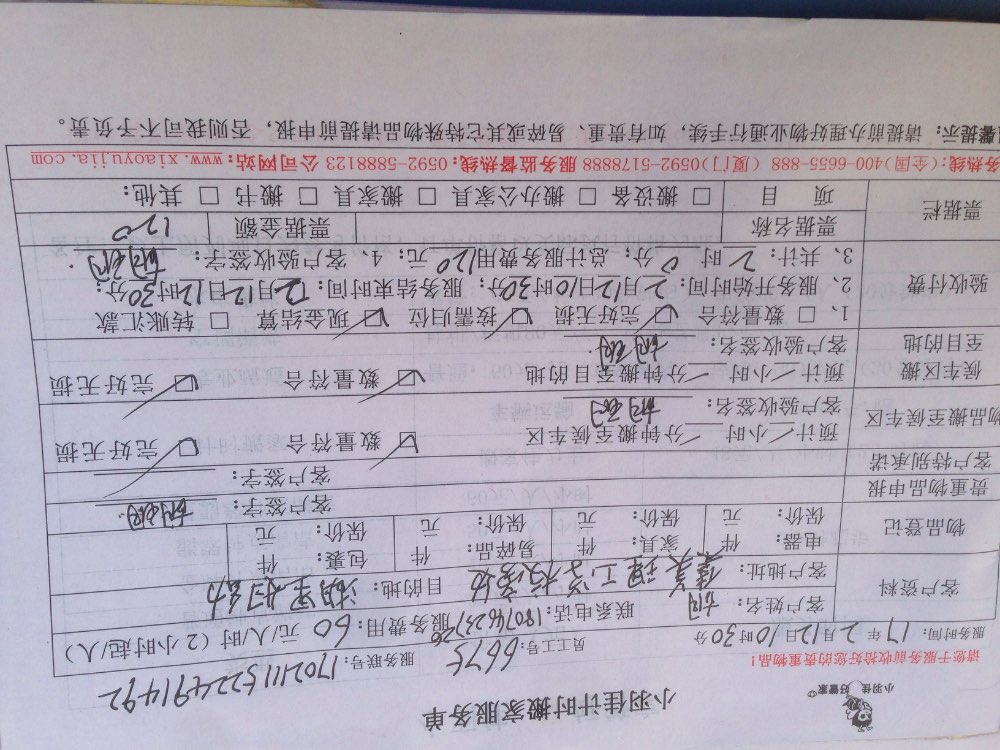 小羽佳 好管家
小羽佳计时搬家服务单
请您于服务前收拾好您的贵重物品!
服务时间: 17年2月12日10时30分 员工工号: 6675 服务联号: 170211152249
客户资料 客户姓名: 胡 联系电话: 服务费用: 60 元/人/时 (2小时起/人)
客户地址: 目的地:
物品登记 电器: 件 家具: 件 易碎品: 件 包裹: 件
保价: 元 保价: 元 保价: 元 保价: 元
贵重物品申报 客户签字:
客户特别承诺 客户签字:
物品搬至候车区 预计/小时/分钟搬至候车区 ☑ 数量符合 ☑ 完好无损
客户验收签名:
候车区搬至目的地 预计/小时/分钟搬至目的地 ☑ 数量符合 ☑ 完好无损
客户验收签名:
验收付费 1、□ 数量符合 ☑ 完好无损 ☑ 按需归位 ☑ 现金结算 □ 转账汇款
2、服务开始时间: 2月12日10时30分; 服务结束时间: 2月12日12时30分;
3、共计: 2时0分; 总计服务费用120元; 4、客户验收签字:
票据栏 票据名称 票据金额 120
项目 □ 搬设备 □ 搬办公家具 □ 搬家具 □ 搬书 □ 其他:
务热线:(全国)400-6655-888 (厦门)0592-5178888 服务监督热线:0592-5888123 公司网站:www.xiaoyujia.com
馨提示: 请提前办理好物业通行手续, 如有贵重、易碎或其它特殊物品请提前申报, 否则我司不予负责。